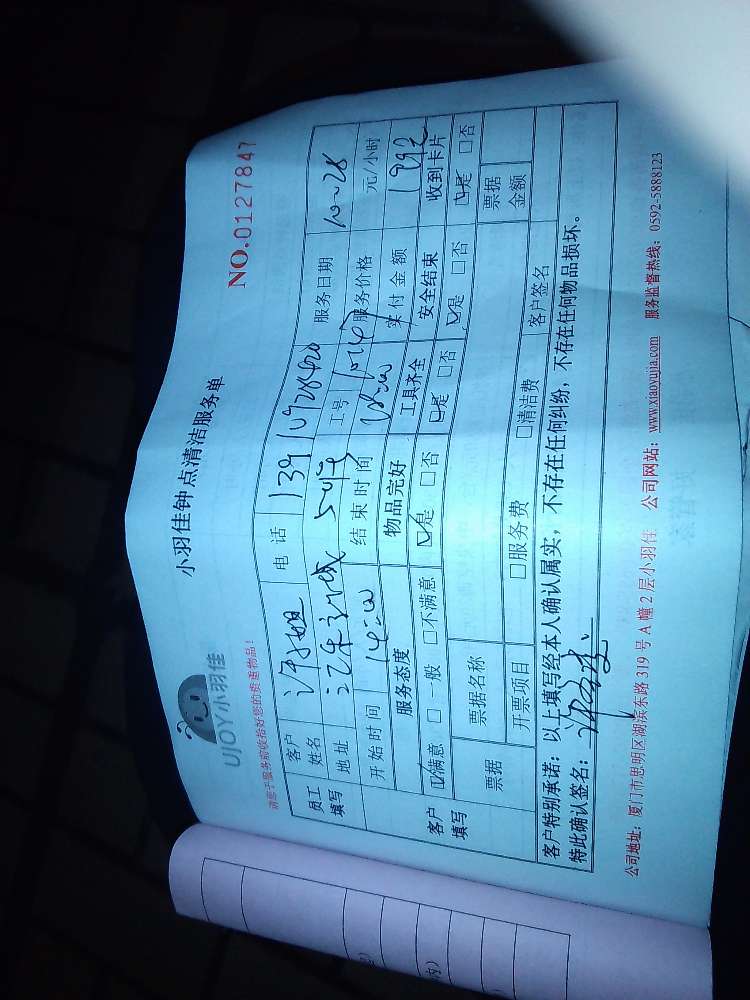 UJOY小羽佳
小羽佳钟点清洁服务单
NO.0127847
请您于服务前收拾好您的贵重物品！
员工填写
客户姓名 许小姐 电话 服务日期 10-28
地址 工号 服务价格 元/小时
开始时间 14:00 结束时间 实付金额
客户填写
服务态度 物品完好 工具齐全 安全结束 收到卡片
☑满意 □一般 □不满意 ☑是 □否 ☑是 □否 ☑是 □否 ☑是 □否
票据 票据名称 票据金额
开票项目 □服务费 □清洁费 客户签名
客户特别承诺：以上填写经本人确认属实，不存在任何纠纷，不存在任何物品损坏。
特此确认签名：
公司地址：厦门市思明区湖滨东路 319 号 A 幢 2 层小羽佳 公司网站：www.xiaoyujia.com 服务监督热线：0592-5888123